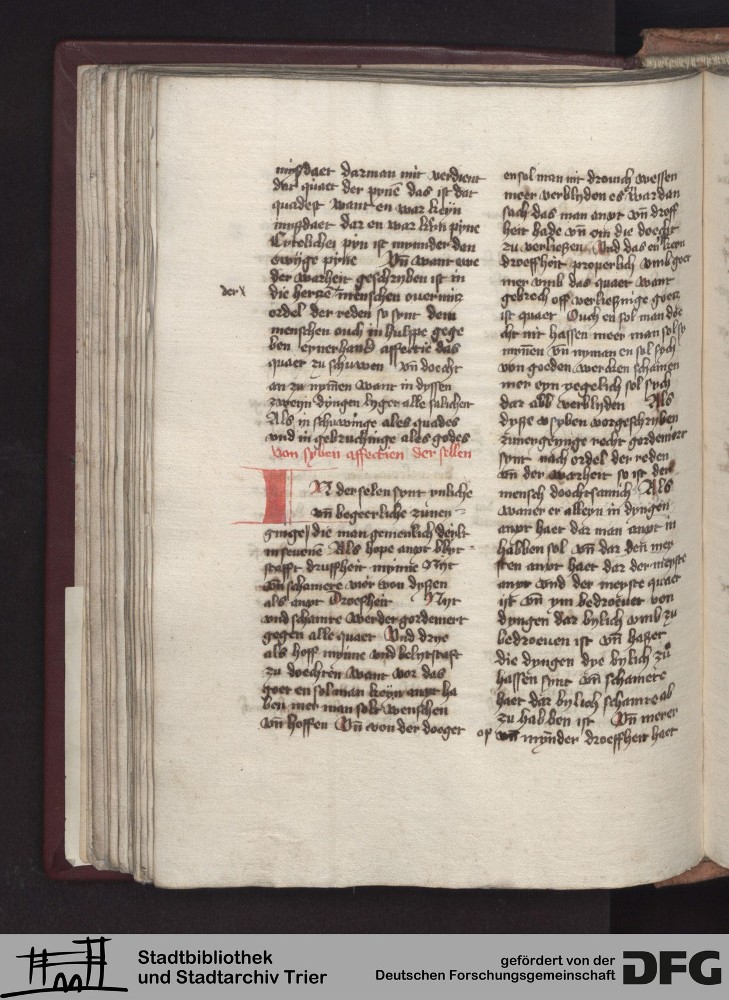 misdaet dar man mit verdient
dat quaet der pynē das ist dat
quadest want en war keyn
misdaet dar en war kein pyne
pyn ist mynder dan
ewige pyne Vn̄ want we
der warheit geschryben ist in
der
die hertze menschen ouermitz
ordel der reden so synt dem
menschen ouch in hulppe gege
ben eynerhand affectie das
quaet zu schuwen vn̄ doecht
an zu nȳmen want in dyssen
zweyn dyngen lyget alle salicheit
Als in schuwinge ales quades
vnd in gebruchinge ales godes
Von syben affectien der sellen
IN der selen synt ynliche
vn̄ begeerliche zunen
ginge die man gemenlich deylt
in seuenē Als hope anxt blyt
stafft druffheit mynne Nyt
vn̄ schamere vier von dyssen
als anxt droefheit Nyt
vnd schamte werden gordeniert
gegen alle quaet Vnd drye
als hoff mynne vnd belytstaft
zu doechten want vor das
goet en sol man keyn anxt ha
ben mer man solt wenschen
vn̄ hoffen Vn̄ von der doeget
en sol man nit drouich wessen
meer verblyden es war dan
sach das man anxt vn̄ droff
heit hade vm die doecht
zu verliessen Vnd das en keyn
droeffheit properlich vmb goet
mer vmb das quaet want
gebrech off verliessnige goetz
ist quaet Ouch en sol man doe
cht nit hassen meer man sol sy
mynnen vn̄ nyman en sol sych
von goeden wercken schamen
mer eyn yegelich sol sych
dar abb verblyden Als
dysse syben vorgeschryben
zunergynge recht gordeniert
synt nach ordel der reden
vn̄ der warheit so ist der
mensch doochtsamich Als
waner er alleyn in dyngen
anxt haet dar man anxt in
habben sol vn̄ dar den mer
sten anxt haet dar der meyste
anxt vnd der meyste quaet
ist vn̄ ym bedroeuet von
dyngen dar bylich vmb zu
bedroeuen ist vn̄ hasset
die dyngen dye bylich zu
hassen synt vn̄ schamete
haet dar bylich schamte ab
zu habben ist Vn̄ merer
op vn̄ mynder droeffheit haet
Stadtbibliothek
und Stadtarchiv Trier
gefördert von der
Deutschen Forschungsgemeinschaft
DFG